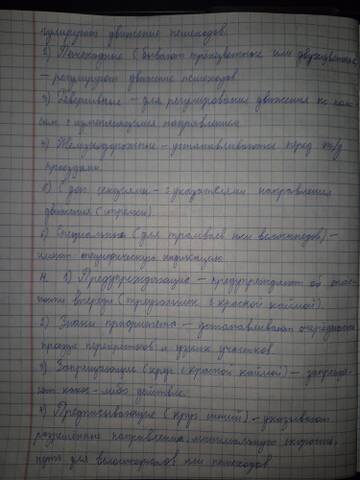 гулируют движение пешеходов.
2) Пешеходные (бывают трёхцветные или двухцветные
– регулируют движение пешеходов
3) Реверсивные – для регулирования движения по поло-
сам с изменяющимся направлением
4) Железнодорожные – устанавливаются перед ж/д
проездами.
5) С доп. секциями – с указателями направления
движения (стрелки).
6) Специальные (для трамваев или велосипедов) –
имеют специфическую индикацию.
4. 1) Предупреждающие – предупреждают об опас-
ности впереди (треугольник с красной каймой).
2) Знаки приоритета – устанавливают очередность
проезда перекрёстков и узких участков.
3) Запрещающие (круг с красной каймой) – запреща-
ют какое-либо действие.
4) Предписывающие (круг синий) – указывают
разрешённые направления, минимальную скорость,
путь для велосипедов или пешеходов